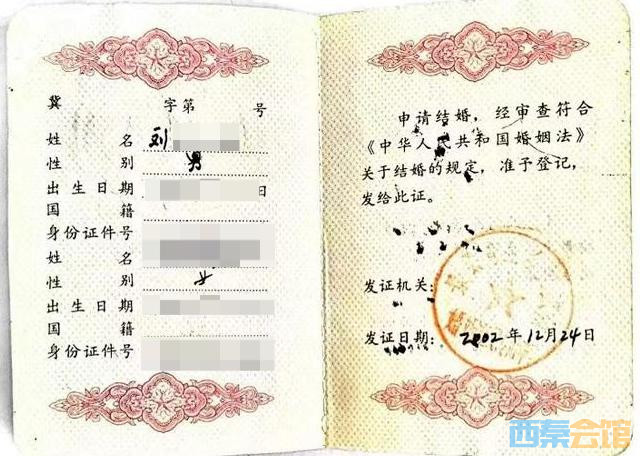 冀 字第 号
姓名 刘
性别 男
出生日期 日
国籍
身份证件号
姓名
性别 女
出生日期
国籍
身份证件号
申请结婚，经审查符合
《中华人民共和国婚姻法》
关于结婚的规定，准予登记，
发给此证。
发证机关：
发证日期：2002年12月24日
西秦会馆